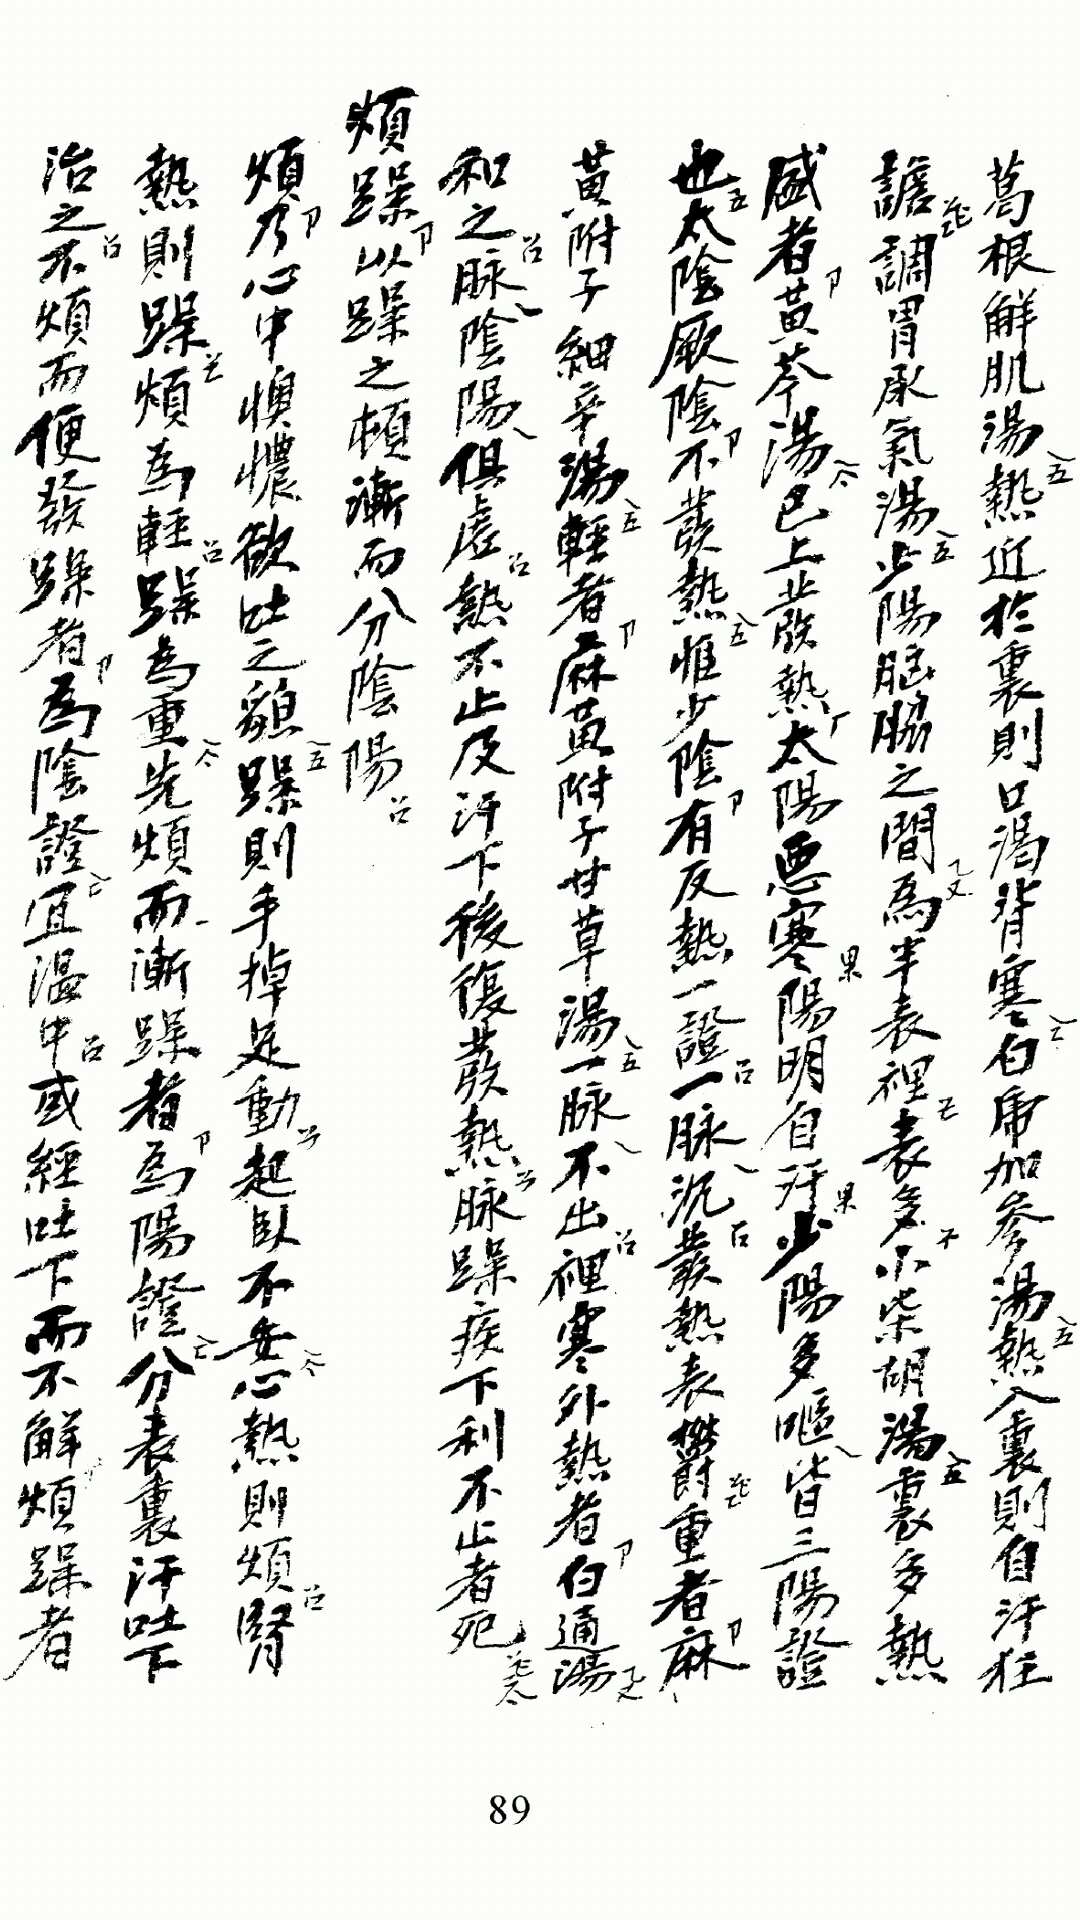 葛根解肌湯熱近於裏則口渴背寒白虎加參湯熱入裏則自汗狂
譫調胃承氣湯少陽脇之間為半表裡表多小柴胡湯裏多熱
盛者黃芩湯已上發熱太陽惡寒陽明自汗少陽多嘔皆三陽證
也太陰厥陰不發熱惟少陰有反熱一證一脉沉發熱表鬱重者麻
黃附子細辛湯輕者麻黃附子甘草湯一脉不出裡寒外熱者白通湯
和之脉陰陽俱虛熱不止及汗下後復發熱脉躁疾下利不止者死
煩躁以躁之頓漸而分陰陽
煩乃心中懊憹欲吐之貌躁則手掉足動起臥不安心熱則煩腎
熱則躁煩為輕躁為重先煩而漸躁者為陽證分表裏汗吐下
治之不煩而便發躁者為陰證宜溫中或經吐下而不解煩躁者
89